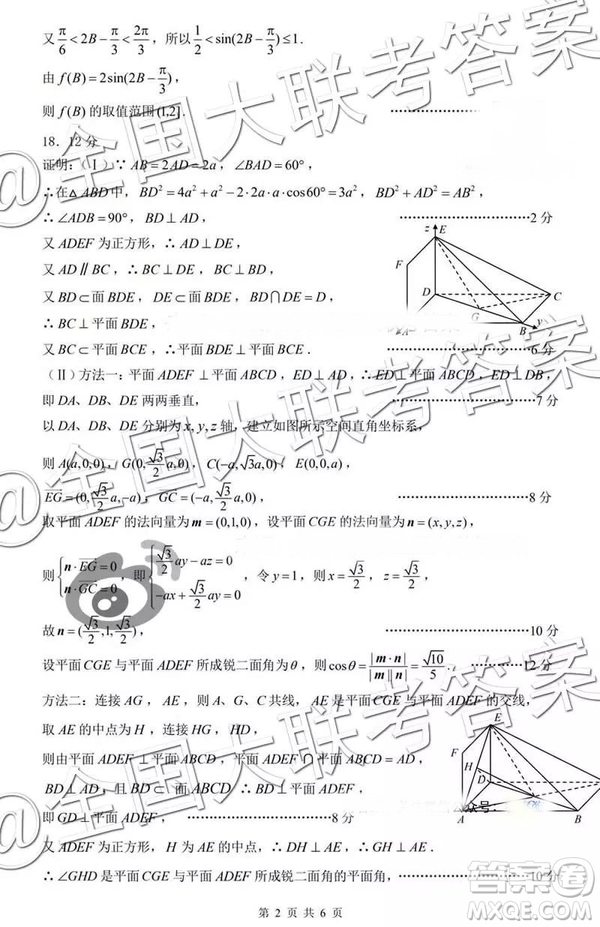 又 π/6 < 2B − π/3 < 2π/3，所以 1/2 < sin(2B − π/3) ≤ 1.
由 f(B) = 2sin(2B − π/3)，
则 f(B) 的取值范围 (1,2].
18．12 分
证明：(Ⅰ)∵ AB = 2AD = 2a，∠BAD = 60°，
∴在△ABD中，BD² = 4a² + a² − 2·2a·a·cos60° = 3a²，BD² + AD² = AB²，
∴∠ADB = 90°，BD ⊥ AD， 2 分
又 ADEF 为正方形，∴ AD ⊥ DE，
又 AD ∥ BC，∴ BC ⊥ BD，BC ⊥ DE，
又 BD ⊂ 面 BDE，DE ⊂ 面 BDE，BD ⋂ DE = D，
∴ BC ⊥ 平面 BDE，
又 BC ⊂ 平面 BCE，∴平面 BDE ⊥ 平面 BCE． 6 分
z E
F
D
C
G
B y
A
(Ⅱ) 方法一：平面 ADEF ⊥ 平面 ABCD，ED ⊥ AD，∴ ED ⊥ 平面 ABCD，ED ⊥ DB，
即 DA、DB、DE 两两垂直， 7 分
以 DA、DB、DE 分别为 x, y, z 轴，建立如图所示空间直角坐标系，
则 A(a,0,0)，G(0, √3/2 a, 0)，C(−a, √3a, 0)，E(0,0,a)，
EG = (0, √3/2 a, −a)，GC = (−a, √3/2 a, 0)， 8 分
取平面 ADEF 的法向量为 m = (0,1,0)，设平面 CGE 的法向量为 n = (x, y, z)，
则 { n·EG = 0, n·GC = 0 ，即 { √3/2 ay − az = 0, −ax + √3/2 ay = 0 ，令 y = 1，则 x = √3/2，z = √3/2，
故 n = (√3/2, 1, √3/2)， 10 分
设平面 CGE 与平面 ADEF 所成锐二面角为 θ，则 cosθ = |m·n| / |m||n| = √10/5． 12 分
方法二：连接 AG，AE，则 A、G、C 共线，AE 是平面 CGE 与平面 ADEF 的交线，
取 AE 的中点为 H，连接 HG、HD，
则由平面 ADEF ⊥ 平面 ABCD，平面 ADEF ⋂ 平面 ABCD = AD，
BD ⊥ AD，且 BD ⊂ 平面 ABCD ∴ BD ⊥ 平面 ADEF，
即 GD ⊥ 平面 ADEF， 8 分
又 ADEF 为正方形，H 为 AE 的中点，∴ DH ⊥ AE，∴ GH ⊥ AE，
∴∠GHD 是平面 CGE 与平面 ADEF 所成锐二面角的平面角， 10 分
E
F
H
D
A
B
众号：
第 2 页 共 6 页
@全国大联考答案
@全国大联考答案
@全国大联考答案
答案圈
MXQE.COM